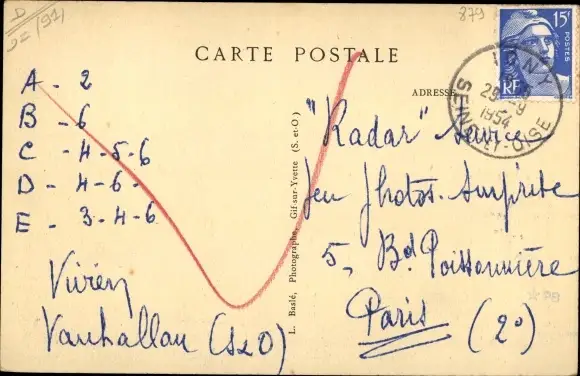 D
(91)
879
15f
POSTES
RF
CARTE POSTALE
ADRESSE
IGNY
29-9
1954
SEINE-ET-OISE
A - 2
B - 6
C - 4-5-6
D - 4-6-
E - 3-4-6
Vauhallan (S&O)
L. Baslé, Photographe, Gif-sur-Yvette (S. et-O)
"Radar" service
Jeu Photos-Surprise
5, Bd Poissonnière
Paris (2º)